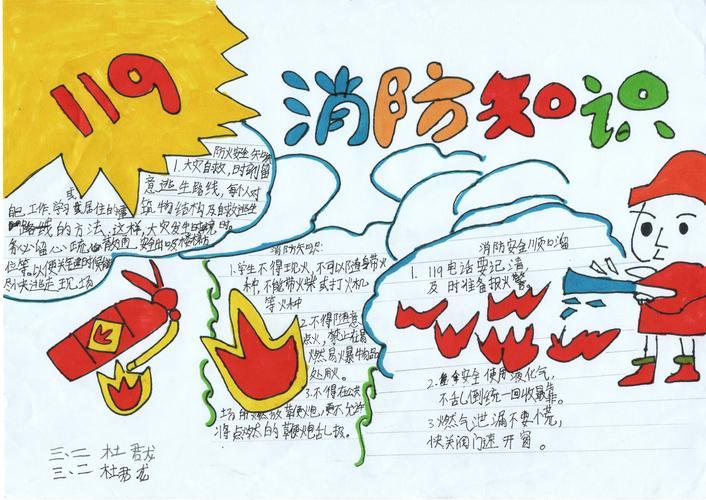 119
消防知识
防火安全知识
1.火灾自救,时刻留
意逃生路线,每个人对
或
工作、学习或居住的
筑物结构及自救逃生
路线的方法,这样,火灾发生时
务必留心疏散
位等,以便关键的时候
尽快逃走现场
消防知识:
1.学生不得玩火,不可以随身带火
种,不能带火柴或打火机
等火种
2.不得随意
点火,禁止在易
燃易爆物品
处用火。
3.不得在公共
场所燃放鞭炮,更不允许
将点燃的鞭炮乱扔。
消防安全顺口溜
1.119电话要记清
及时准备报火警
2.安全使用液化气,
不乱倒统一回收最靠。
3.燃气泄漏不要慌,
快关阀门速开窗。
三、二 杜君龙
三、二 杜君龙